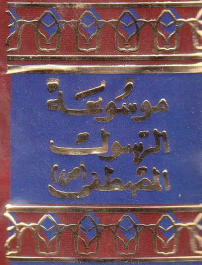 موسوعة
الرسول
المصطفى (ص)